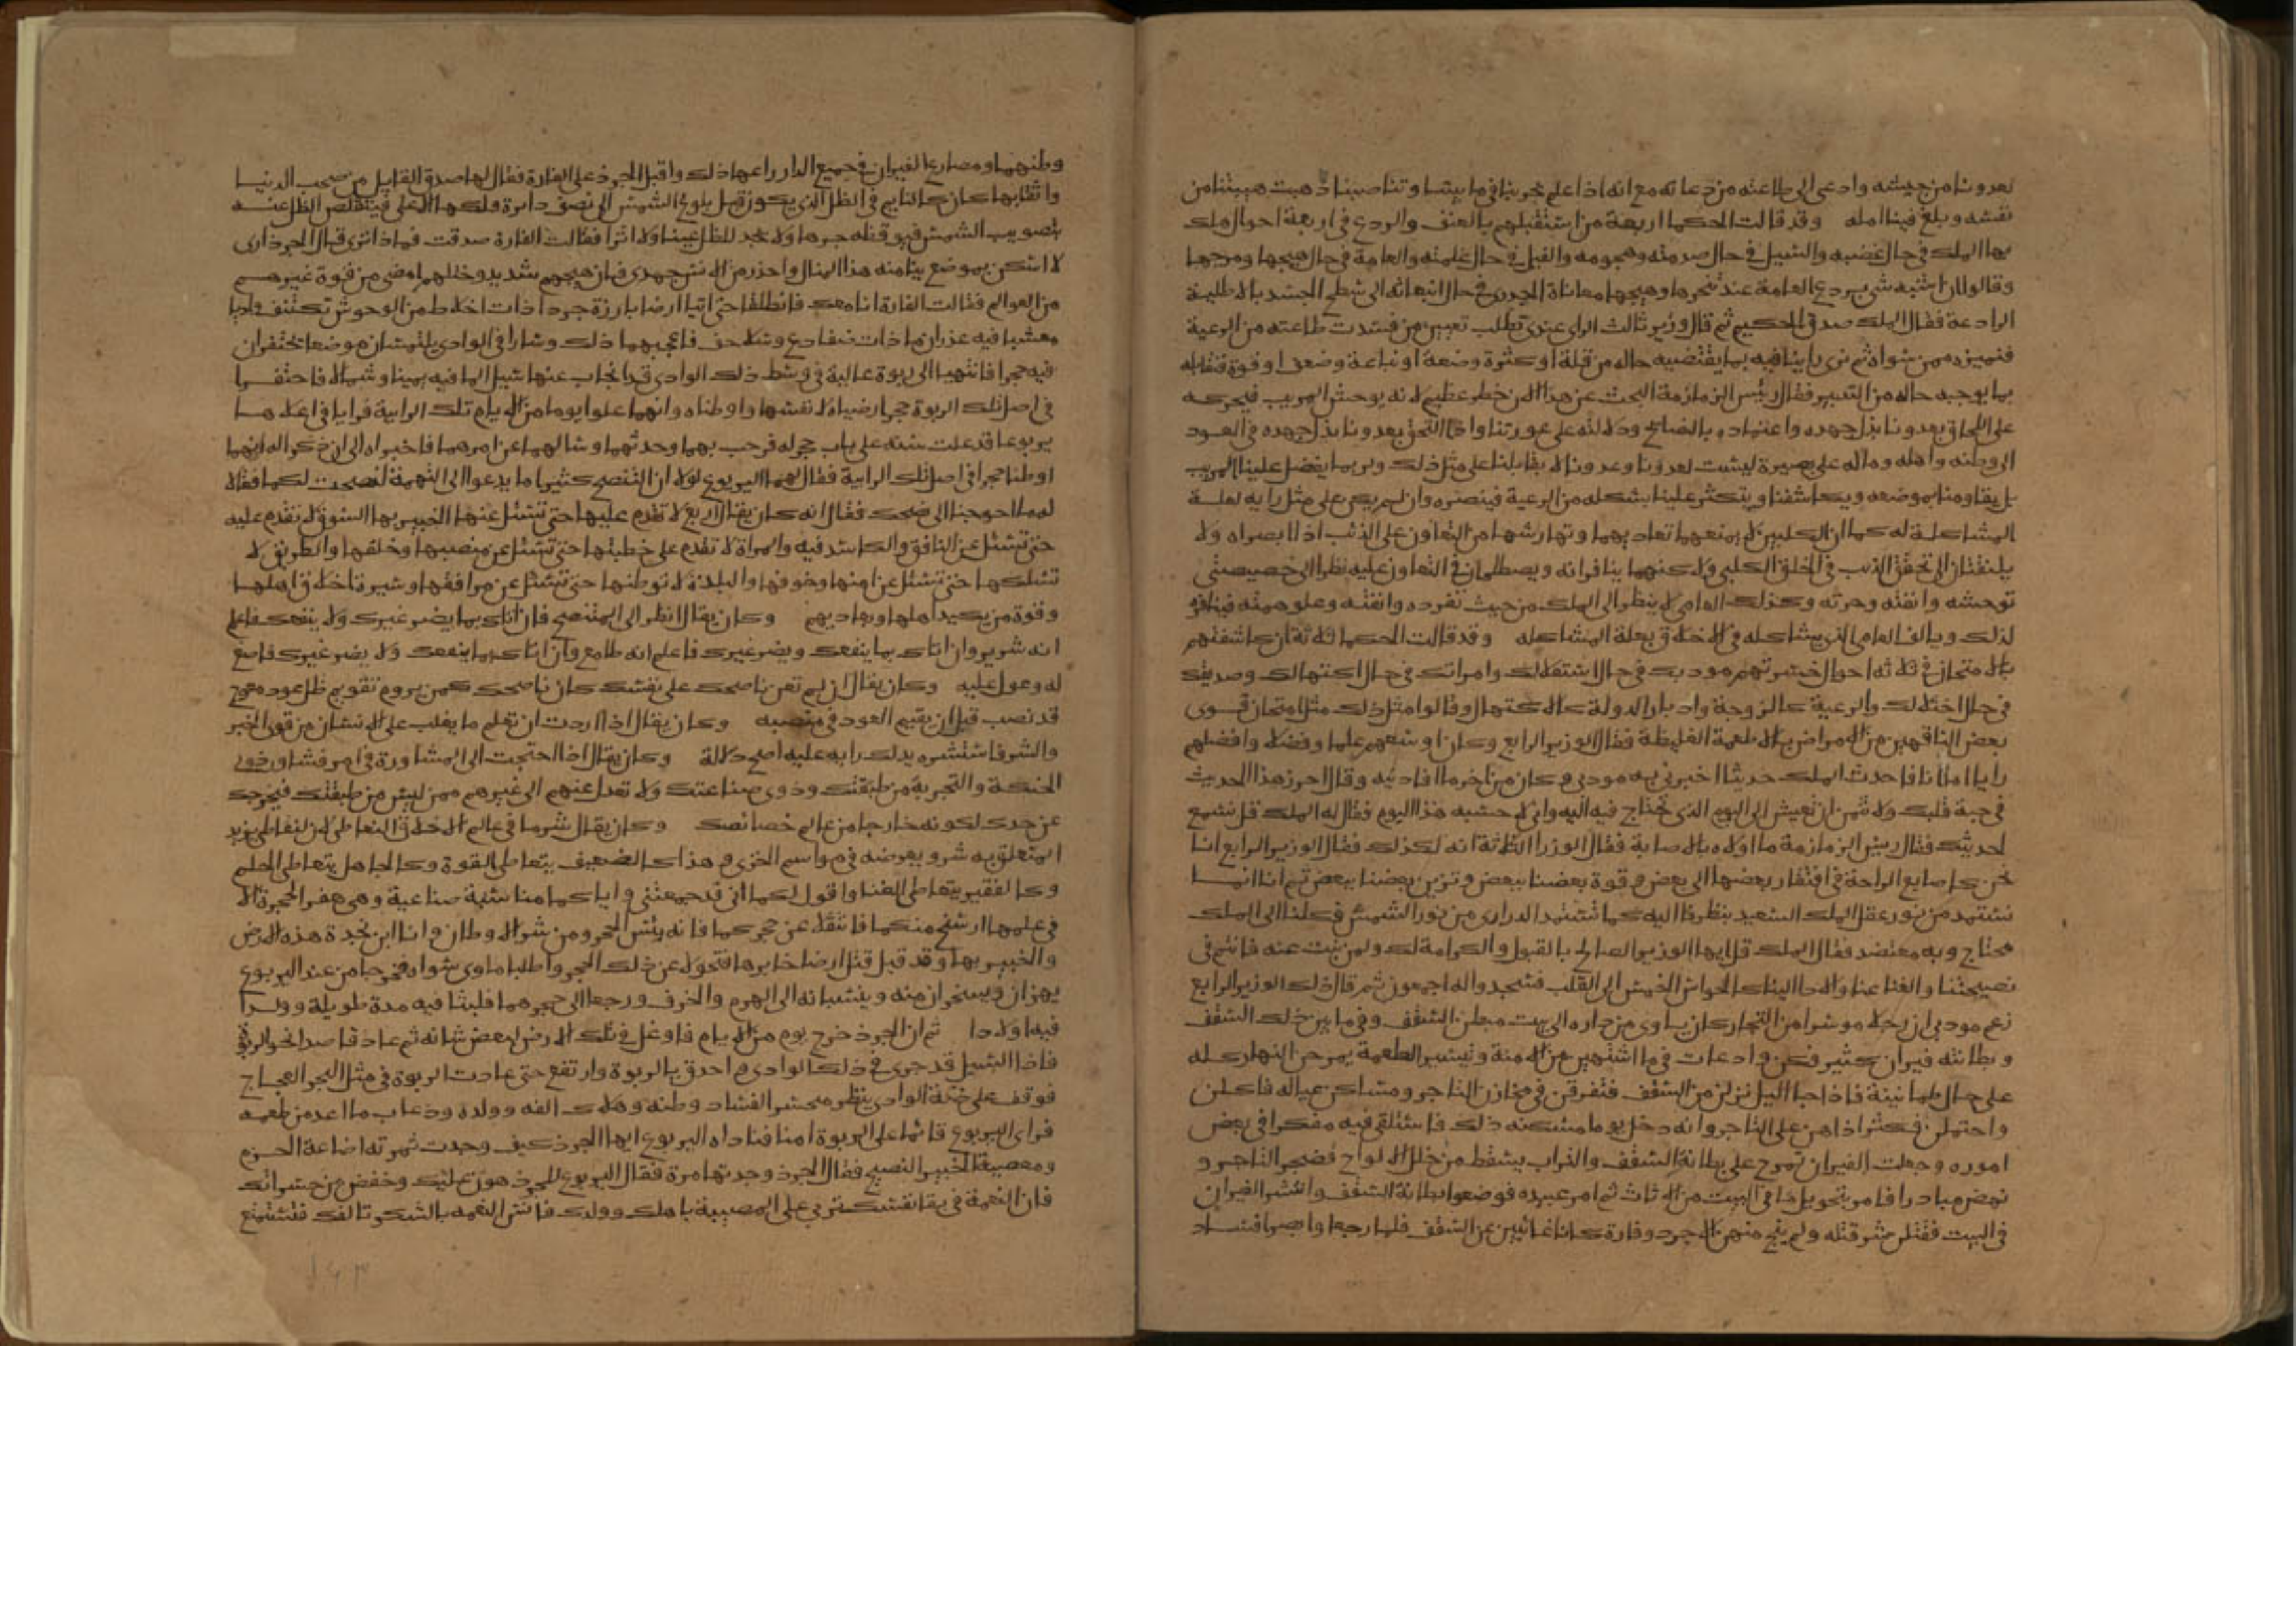 لعدونا من جيشه وادعى الى طاعته من دعا له مع انه اذا علم تحزبنا فيما بيننا وتناصبنا ذهبت هيبتنا من
نفسه وبلغ فينا امله وقد قالت الحكما اربعة من استقبلهم بالعنف والردع في اربعة احوال هلك
بها الملك في حال غضبه والسيل في حال صدمته وهجومه والفيل في حال غلمته والعامة في حال هيجها ومرجها
وقالوا ان اشبه شي بردع العامة عند تنمرها وهيجها معاناة الجدري في حال انبعاثه الى سطح الجسد بالاطلية
الرادعة فقال الملك صدق الحكيم ثم قال وزير ثالث الراي عندي تطلب تعيين من فسدت طاعته من الرعية
فنميزه ممن سواه ثم نرى راينا فيه بما يقتضيه حاله من قلة او كثرة وضعة او نباهة وضعف او قوة فنقابله
بما يوجبه حاله من التدبير فقال رئيس الزمازمة البحث عن هذا الان خطر عظيم لانه يوحش المريب فيحركه
على اللحاق بعدونا بذل جهده واعتماده بالنصائح ودلالته على عورتنا واذا التحق بعدونا بذل جهده في العود
الى وطنه واهله وماله على بصيرة ليست لعدونا وعدونا لا يقابلنا على مثل ذلك ولربما يفضل علينا المريب
بل يقاومنا بموضعه ويكاشفنا ويتكثر علينا بشكله من الرعية فينصره وان لم يكن على مثل رايه لعلة
المشاكلة له كما ان الكلبين لا يمنعهما تعاديهما وتهارشهما من التعاون على الذئب اذا ابصراه ولا
يلتفتان الى تحقق الذئب في الخلق الكلبي ولاكنهما ينافرانه ويصطلحان في التعاون عليه نظرا الى خصيصتي
توحشه وانفته وحرته وكذلك العامي لا ينظر الى الملك من حيث تفرده وانفته وعلو همته فينافره
لذلك ويالف العامي الذي يشاكله في الاخلاق بعلة المشاكله وقد قالت الحكما ثلاثة ان كاشفتهم
بالامتحان في ثلاثة احوال خسرتهم مودبك في حال استقلالك وامراتك في حال اكتهالك وصديقك
في حال اختلالك والرعية كالزوجة وادبار الدولة كالاكتهال وقالوا مثل ذلك مثل امتحان قوى
بعض الناقهين من الامراض بالاطعمة الغليظة فقال الوزير الرابع وكان اوسعهم علما وفضلا وافضلهم
رايا اما انا فاحدث الملك حديثا اخبرني به مودبي وكان من اخر ما افادنيه وقال احرز هذا الحديث
في حبة قلبك ولا تمن ان تعيش الى اليوم الذي تحتاج فيه اليه واني لاحسبه هذا اليوم فقال له الملك قل نسمع
لحديثك فقال ريس الزمازمة ما اولاه بالاصابة فقال الوزرا الثلاثة انه لكذلك فقال الوزير الرابع انا
نحن كاصابع الراحة في افتقار بعضها الى بعض وقوة بعضنا ببعض وتزين بعضنا ببعض ثم انا انما
نستمد من نور عقل الملك السعيد بنظرنا اليه كما تستمد الدراري من نور الشمس فكلنا الى الملك
محتاج وبه معتضد فقال الملك قل ايها الوزير الصالح بالقبول والكرامة لك ولمن نبت عنه فانتم في
نصيحتنا والغنا عنا والاحا الينا كالحواس الخمس الى القلب فسجدوا له اجمعون ثم قال ذلك الوزير الرابع
زعم مودبي ان رجلا موسرا من التجار كان ياوي من داره الى بيت مبطن السقف وفيما بين ذلك السقف
وبطانته فيران كثير فكن وادعات فيما اشتهين من الامنة وتيسير الطعمة يمرحن النهار كله
على حال طمانينة فاذا جا الليل نزلن من السقف فتفرقن في مخازن التاجر ومساكن عياله فاكلن
واحتملن فكثر اذاهن على التاجر وانه دخل يوما مسكنه ذلك فاستلقى فيه مفكرا في بعض
اموره وجعلت الفيران تمرح على بطانة السقف والتراب يسقط من خلل الالواح فضجر التاجر و
نهض مبادرا فامر بتحويل ما في البيت من الاثاث ثم امر عبيده فوضعوا بطانة السقف وانتشر الفيران
في البيت فقتلن شر قتله ولم ينج منهن الا جرذ وفارة كانا غائبين عن السقف فلما رجعا وابصرا فساد
وطنهما ومصارع الفيران في جميع الدار راعها ذلك واقبل الجرذ على الفارة فقال لها صدق القايل من صحب الدنيا
واثقا بها كان كالنايم في الظل الذي يكون قبل بلوغ الشمس الى نصف دائرة فلكها الاعلى فيتقلص الظل عنه
بتصويب الشمس فيوقظه حرها ولا يجد للظل عينا ولا اثرا فقالت الفارة صدقت فماذا ترى قال الجرذ ارى
لا اسكن بموضع ينا منه هذا المنال واحذر من الانس جهدي فان هيجهم شديد وختلهم امضى من قوة غيرهم
من العوالم فقالت الفارة انا معك فانطلقا حتى اتيا ارضا بارزة جردا ذات اخلاط من الوحوش تكتنف واديا
معشبا فيه غدران ما ذات ضفادع وسلاحف فاعجبهما ذلك وسارا في الوادي يلتمسان موضعا يحتفران
فيه جحرا فانتهيا الى ربوة عالية في وسط ذلك الوادي قد انجاب عنها سيل الما فيه يمينا وشمالا فاحتفرا
في اصل تلك الربوة جحرا رضياه لانفسهما واوطناه وانهما علوا يوما من الايام تلك الرابية فرايا في اعلاها
يربوعا قد علت سنه على باب جحر له فرحب بهما وحدثهما وسالهما عن امرهما فاخبراه الى ان ذكرا له انهما
اوطنا جحرا في اصل تلك الرابية فقال لهما اليربوع لولا ان التنصح كثيرا ما يدعوا الى التهمة لنصحت لكما فقالا
له ما احوجنا الى نصحك فقال انه كان يقال اربع لا تقدم عليها حتى تسئل عنها الخبير بها السوق لا تقدم عليه
حتى تسئل عن النافق والكاسد فيه والمراة لا تقدم على خطبتها حتى تسئل عن منصبها وخلقها والطريق لا
تسلكها حتى تسئل عن امنها وخوفها والبلدة لا توطنها حتى تسئل عن مرافقها وسيرة اخلاق اهلها
وقوة من يكيد اهلها ويعاديهم وكان يقال انظر الى المتنصح فان اتاك بما يضر غيرك ولا ينفعك فاعلم
انه شرير وان اتاك بما ينفعك ويضر غيرك فاعلم انه طامع وان اتاك بما ينفعك ولا يضر غيرك فاصغ
له وعول عليه وكان يقال ان لم تعن ناصحك على نفسك كان ناصحك كمن يروم تقويم ظل عود معوج
قد نصب قبل ان يقيم العود في منصبه وكان يقال اذا اردت ان تعلم ما يغلب على الانسان من قوى الخير
والشر فاستشره يدلك رايه عليه اصح دلالة وكان يقال اذا احتجت الى المشاورة في امر فشاور ذوي
الحنكة والتجربة من طبقتك وذوي صناعتك ولا تعدل عنهم الى غيرهم ممن ليس من طبقتك فيخرجك
عن حدك لكونه خارجا من عالم خصائصك وكان يقال شر ما في عالم الاخلاق التعاطي لان التعاطي يزيد
المتعلق به شر ويعرضه في مواسم الخزي وهذا كالضعيف يتعاطى القوة وكالجاهل يتعاطى الحلم
وكالفقير يتعاطى الغنا واقول لكما اني قد جمعتني واياكما مناسبة صناعية وهي حفر الاجحرة الا
في علمها ارسخ منكما فانتقلا عن جحركما فانه بئس الجحر ومن شر الاوطان وانا ابن بجدة هذه الارض
والخبير بها وقد قيل قتل ارضا خابرها فتحولا عن ذلك الجحر واطلبا ماوى سواه فخرجا من عند اليربوع
يهزان ويسخران منه وينسبانه الى الهرم والخرف ورجعا الى جحرهما فلبثا فيه مدة طويلة وولدا
فيه اولادا ثم ان الجرذ خرج يوم من الايام فاوغل في تلك الارض لبعض شانه ثم عاد قاصدا نحو الربوة
فاذا السيل قد جرى في ذلك الوادي واحدق بالربوة وارتفع حتى عادت الربوة في مثل البحر العجاج
فوقف على ضفة الوادي ينظر متحسرا لفساد وطنه وهلاك الفه وولده وذهاب ما اعد من طعمه
فراى اليربوع قائما على الربوة امنا فناداه اليربوع ايها الجرذ كيف وجدت ثمرة اضاعة الحزم
ومعصية الخبير النصيح فقال الجرذ وجدتها مرة فقال اليربوع للجرذ هون عليك وخفض من حسراتك
فان النعمة في بقا نفسك تربي على المصيبة باهلك وولدك فانس النعمه بالشكر تالفك فتستمتع